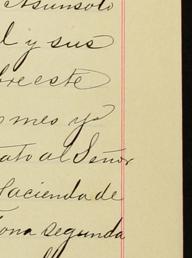 Asunsolo
l y sus
bre este
mes y
tato al Señor
Hacienda de
ona segunda